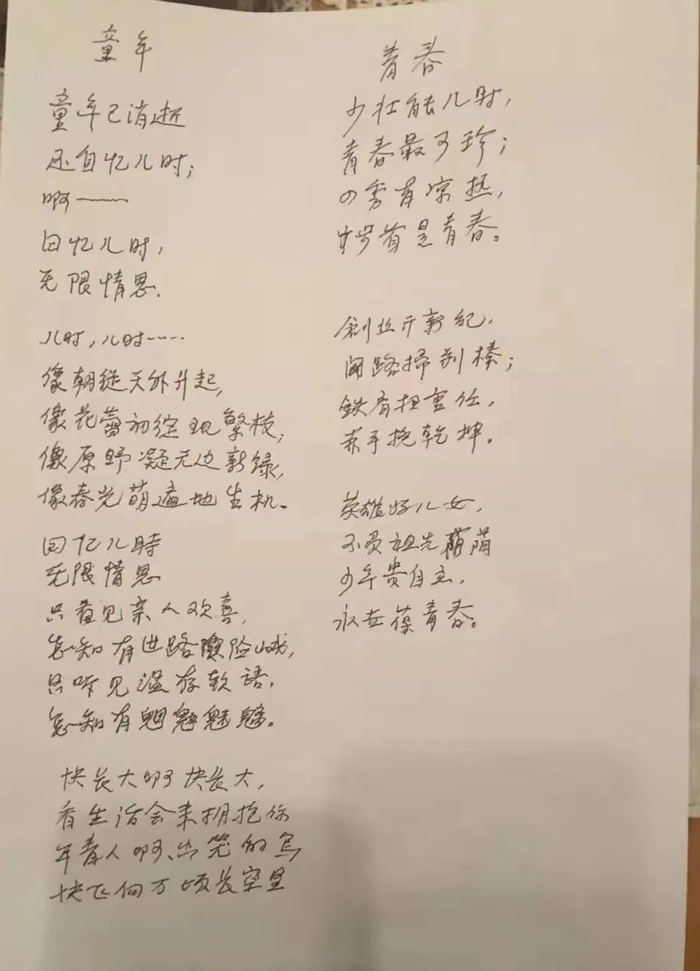 童年
童年已消逝
还自忆儿时；
啊——
回忆儿时，
无限情思.
儿时，儿时……
像朝绽天外升起，
像花蕾初绽现繁枝；
像原野凝无边新绿，
像春光萌遍地生机。
回忆儿時
无限情思
只看见亲人欢喜，
怎知有世路险巇，
只听见温存软语，
怎知有魍魉魅魑。
快长大啊快长大，
看生活会来拥抱你
年青人啊、出笼的鸟
快飞向万顷长空里
青春
少壮能几时，
青春最可珍；
有凉热，
首是青春。
创拉开新纪，
闯路扫荆榛；
鉄肩担重任，
赤手挽乾坤。
英雄好儿女，
不负祖先荫
少年贵自立，
永葆青春。